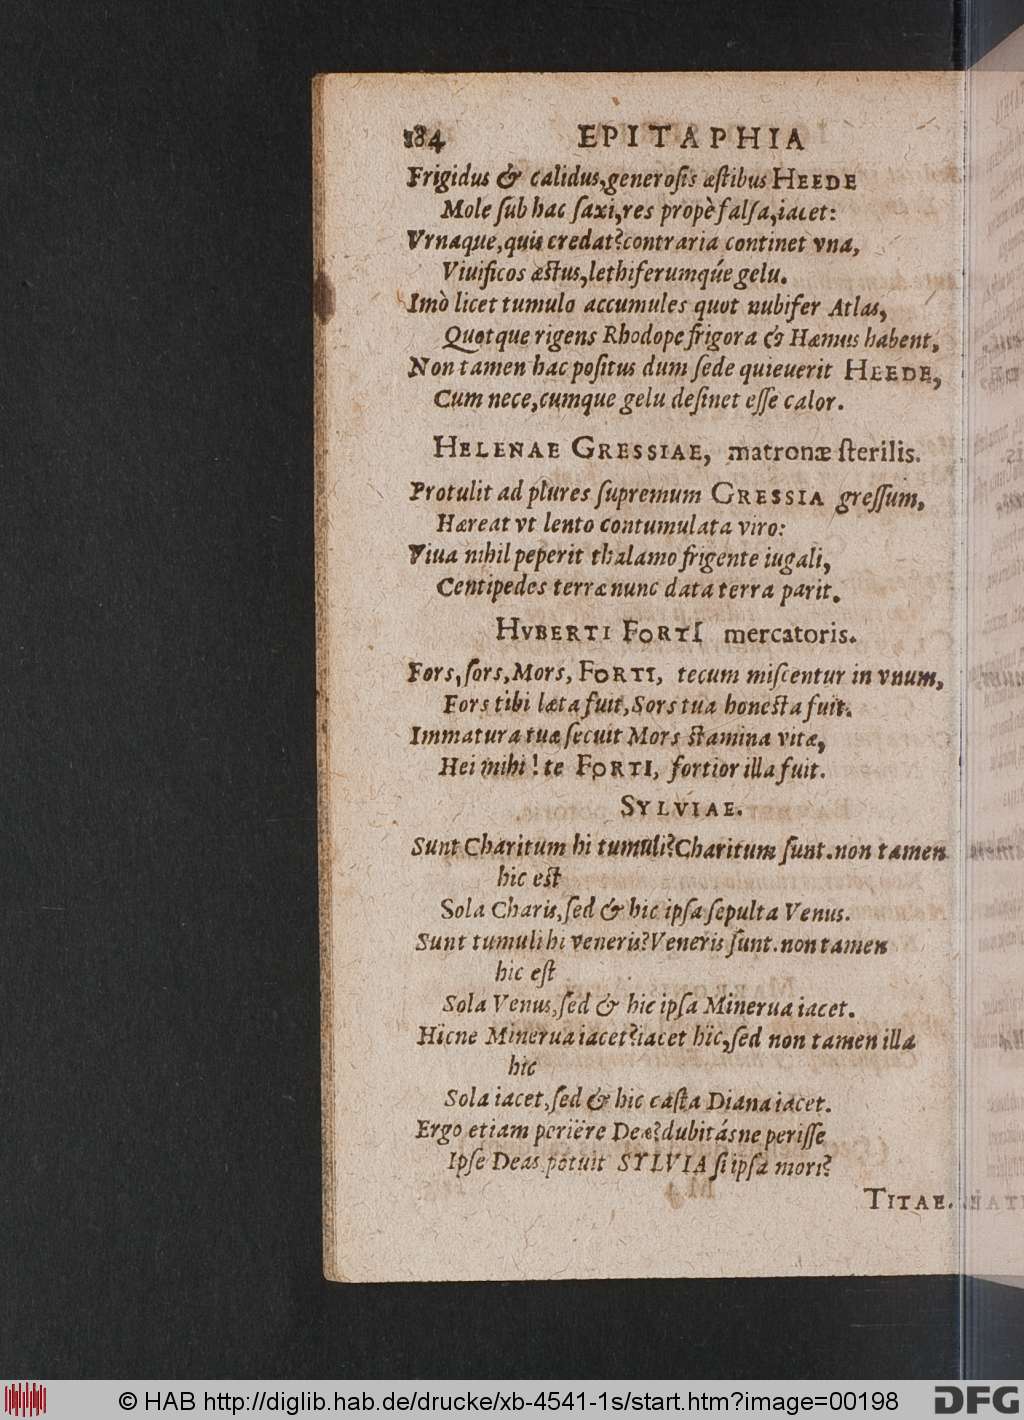 184 EPITAPHIA
Frigidus & calidus, generosis æstibus HEEDE
Mole sub hac saxi, res propè falsa, iacet:
Vrnaque, quis credat? contraria continet vna,
Viuificos æstus, lethiferumqúe gelu.
Imò licet tumulo accumules quot nubifer Atlas,
Quotque rigens Rhodope frigora & Hæmus habent,
Non tamen hac positus dum sede quieuerit HEEDE,
Cum nece, cumque gelu desinet esse calor.
HELENAE GRESSIAE, matronæ sterilis.
Protulit ad plures supremum GRESSIA gressum,
Hæreat vt lento contumulata viro:
Viua nihil peperit thalamo frigente iugali,
Centipedes terræ nunc data terra parit.
HVBERTI FORTI mercatoris.
Fors, sors, Mors, FORTI, tecum miscentur in vnum,
Fors tibi læta fuit, Sors tua honesta fuit.
Immatura tuæ secuit Mors stamina vitæ,
Hei mihi! te FORTI, fortior illa fuit.
SYLVIAE.
Sunt Charitum hi tumuli? Charitum sunt. non tamen
hic est
Sola Charis, sed & hic ipsa sepulta Venus.
Sunt tumuli hi veneris? Veneris sunt. non tamen
hic est
Sola Venus, sed & hic ipsa Minerua iacet.
Hicne Minerua iacet? iacet hîc, sed non tamen illa
hic
Sola iacet, sed & hic casta Diana iacet.
Ergo etiam periëre Deæ? dubitásne perisse
Ipse Deas potuit SYLVIA si ipsa mori?
TITAE.
© HAB http://diglib.hab.de/drucke/xb-4541-1s/start.htm?image=00198
DFG